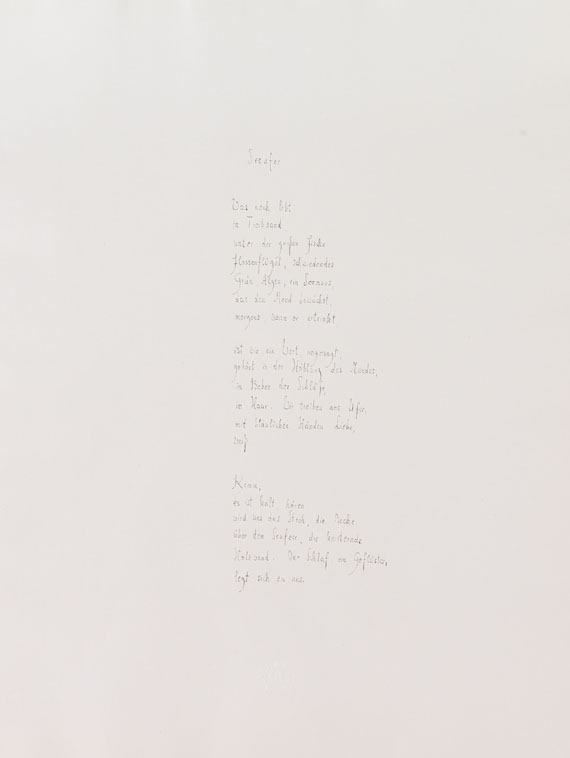 Seeufer
Was noch lebt
im Triebsand
unter der großen Fische
Flossenflügel, schneidendes
Grün, Algen, ein
das den Mond bewächst,
morgens, wenn er ertrinkt,
ist wie ein Wort, ungesagt,
gehört in der Höhlung des Mundes,
im Beben der Schläfe,
im Haar. Wir treiben ans Ufer,
mit bläulichen Händen Liebe,
weiß
Komm,
es ist kalt hören
wird uns das Stroh, die Decke
über den Seufzer, die
Holzwand. Der Schlaf, ein Geflüster,
legt sich zu uns.